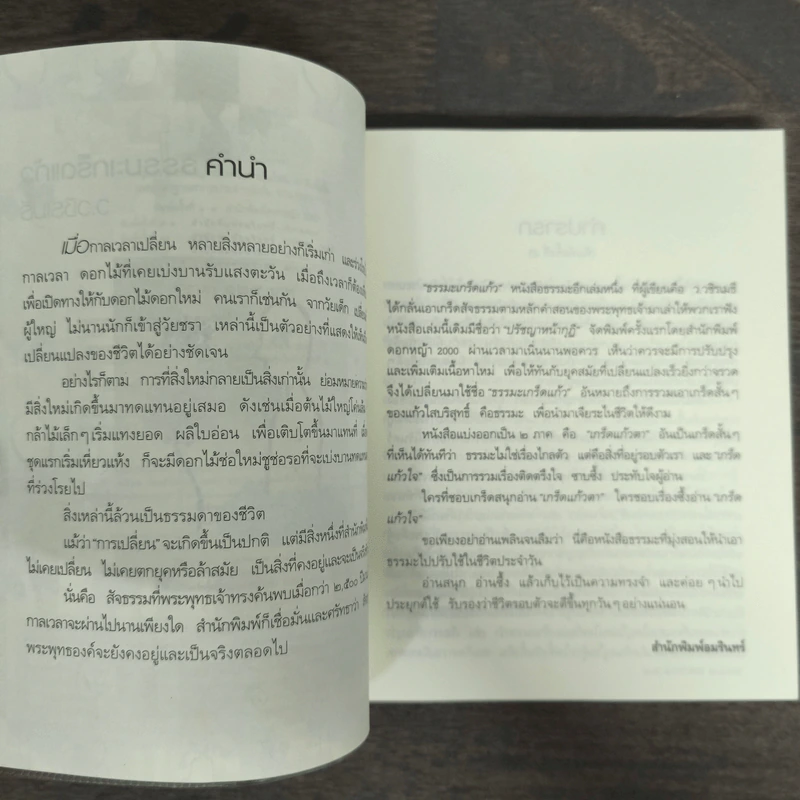 คำนำ
เมื่อกาลเวลาเปลี่ยน หลายสิ่งหลายอย่างก็เริ่มเก่า
กาลเวลา ดอกไม้ที่เคยเบ่งบานรับแสงตะวัน เมื่อถึงเวลาก็ต้อง
เพื่อเปิดทางให้กับดอกไม้ดอกใหม่ คนเราก็เช่นกัน จากวัยเด็ก
ผู้ใหญ่ ไม่นานนักก็เข้าสู่วัยชรา เหล่านี้เป็นตัวอย่างที่แสดงให้
เปลี่ยนแปลงของชีวิตได้อย่างชัดเจน
อย่างไรก็ตาม การที่สิ่งใหม่กลายเป็นสิ่งเก่านั้น ย่อมหมายความ
มีสิ่งใหม่เกิดขึ้นมาทดแทนอยู่เสมอ ดังเช่นเมื่อต้นไม้ใหญ่โค่น
กล้าไม้เล็กๆ เริ่มแทงยอด ผลิใบอ่อน เพื่อเติบโตขึ้นมาแทนที่
ชุดแรกเริ่มเหี่ยวแห้ง ก็จะมีดอกไม้ช่อใหม่ชูช่อรอที่จะเบ่งบาน
ที่ร่วงโรยไป
สิ่งเหล่านี้ล้วนเป็นธรรมดาของชีวิต
แม้ว่า "การเปลี่ยน" จะเกิดขึ้นเป็นปกติ แต่มีสิ่งหนึ่งที่สำนักพิมพ์
ไม่เคยเปลี่ยน ไม่เคยตกยุคหรือล้าสมัย เป็นสิ่งที่คงอยู่และจะ
นั่นคือ สัจธรรมที่พระพุทธเจ้าทรงค้นพบเมื่อกว่า ๒,๕๐๐ ปี
กาลเวลาจะผ่านไปนานเพียงใด สำนักพิมพ์ก็เชื่อมั่นและศรัทธาว่า
พระพุทธองค์จะยังคงอยู่และเป็นจริงตลอดไป
"ธรรมะเกร็ดแก้ว" หนังสือธรรมะอีกเล่มหนึ่ง ที่ผู้เขียนคือ ว.วชิรเมธี
ได้กลั่นเอาเกร็ดสัจธรรมตามหลักคำสอนของพระพุทธเจ้ามาเล่าให้พวกเราฟัง
หนังสือเล่มนี้เดิมมีชื่อว่า "ปรัชญาหน้ากุฏิ" จัดพิมพ์ครั้งแรกโดยสำนักพิมพ์
ดอกหญ้า 2000 ผ่านเวลามาเนิ่นนานพอควร เห็นว่าควรจะมีการปรับปรุง
และเพิ่มเติมเนื้อหาใหม่ เพื่อให้ทันกับยุคสมัยที่เปลี่ยนแปลงเร็วยิ่งกว่าจรวด
จึงได้เปลี่ยนมาใช้ชื่อ "ธรรมะเกร็ดแก้ว" อันหมายถึงการรวมเอาเกร็ดสั้นๆ
ของแก้วใสบริสุทธิ์ คือธรรมะ เพื่อนำมาเจียระไนชีวิตให้ดีงาม
หนังสือแบ่งออกเป็น ๒ ภาค คือ "เกร็ดแก้วตา" อันเป็นเกร็ดสั้นๆ
ที่เห็นได้ทันทีว่า ธรรมะไม่ใช่เรื่องไกลตัว แต่คือสิ่งที่อยู่รอบตัวเรา และ "เกร็ด
แก้วใจ" ซึ่งเป็นการรวมเรื่องติดตรึงใจ ซาบซึ้ง ประทับใจผู้อ่าน
ใครที่ชอบเกร็ดสนุกอ่าน "เกร็ดแก้วตา" ใครชอบเรื่องซึ้งอ่าน "เกร็ด
แก้วใจ"
ขอเพียงอย่าอ่านเพลินจนลืมว่า นี่คือหนังสือธรรมะที่มุ่งสอนให้นำเอา
ธรรมะไปปรับใช้ในชีวิตประจำวัน
อ่านสนุก อ่านซึ้ง แล้วเก็บไว้เป็นความทรงจำ และค่อยๆ นำไป
ประยุกต์ใช้ รับรองว่าชีวิตรอบตัวจะดีขึ้นทุกวันๆ อย่างแน่นอน
สำนักพิมพ์อมรินทร์